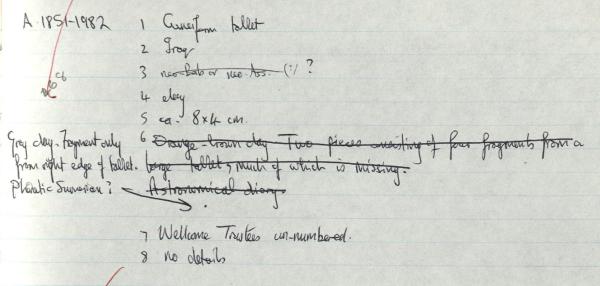 A 1851-1982
1 Cuneiform tablet
2 Iraq
3 neo-Bab or neo-Ass. (?) ?
4 clay
5 ca. 8x4 cm.
6 Orange-brown clay Two pieces consisting of four fragments from a
large tablet, much of which is missing.
Astronomical diary.
Grey clay. Fragment only
from right edge of tablet.
Phonetic Sumerian?
7 Wellcome Trustees un-numbered.
8 no details